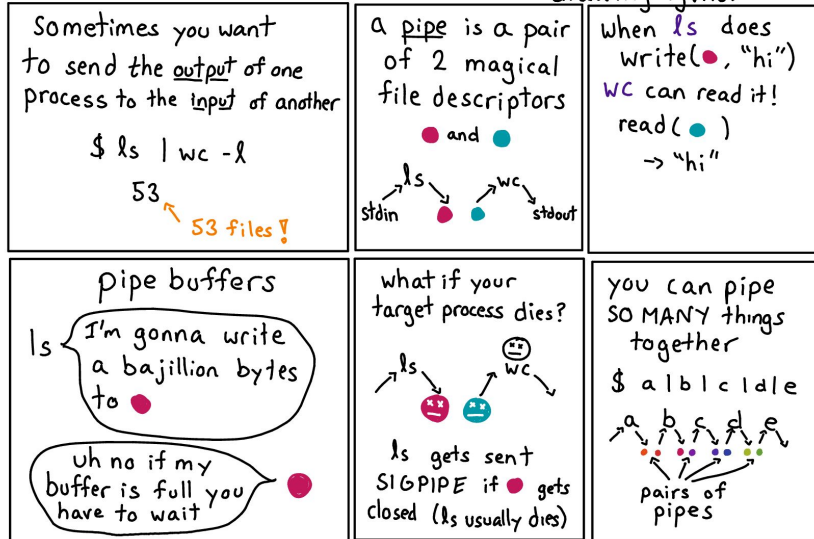 sometimes you want
to send the output of one
process to the input of another
$ ls | wc -l
53
53 files!
a pipe is a pair
of 2 magical
file descriptors
and
ls
wc
stdin
stdout
when ls does
write( , "hi")
wc can read it!
read( )
→ "hi"
pipe buffers
ls
I'm gonna write
a bajillion bytes
to
uh no if my
buffer is full you
have to wait
what if your
target process dies?
ls
wc
ls gets sent
SIGPIPE if gets
closed (ls usually dies)
you can pipe
SO MANY things
together
$ a | b | c | d | e
a b c d e
pairs of
pipes